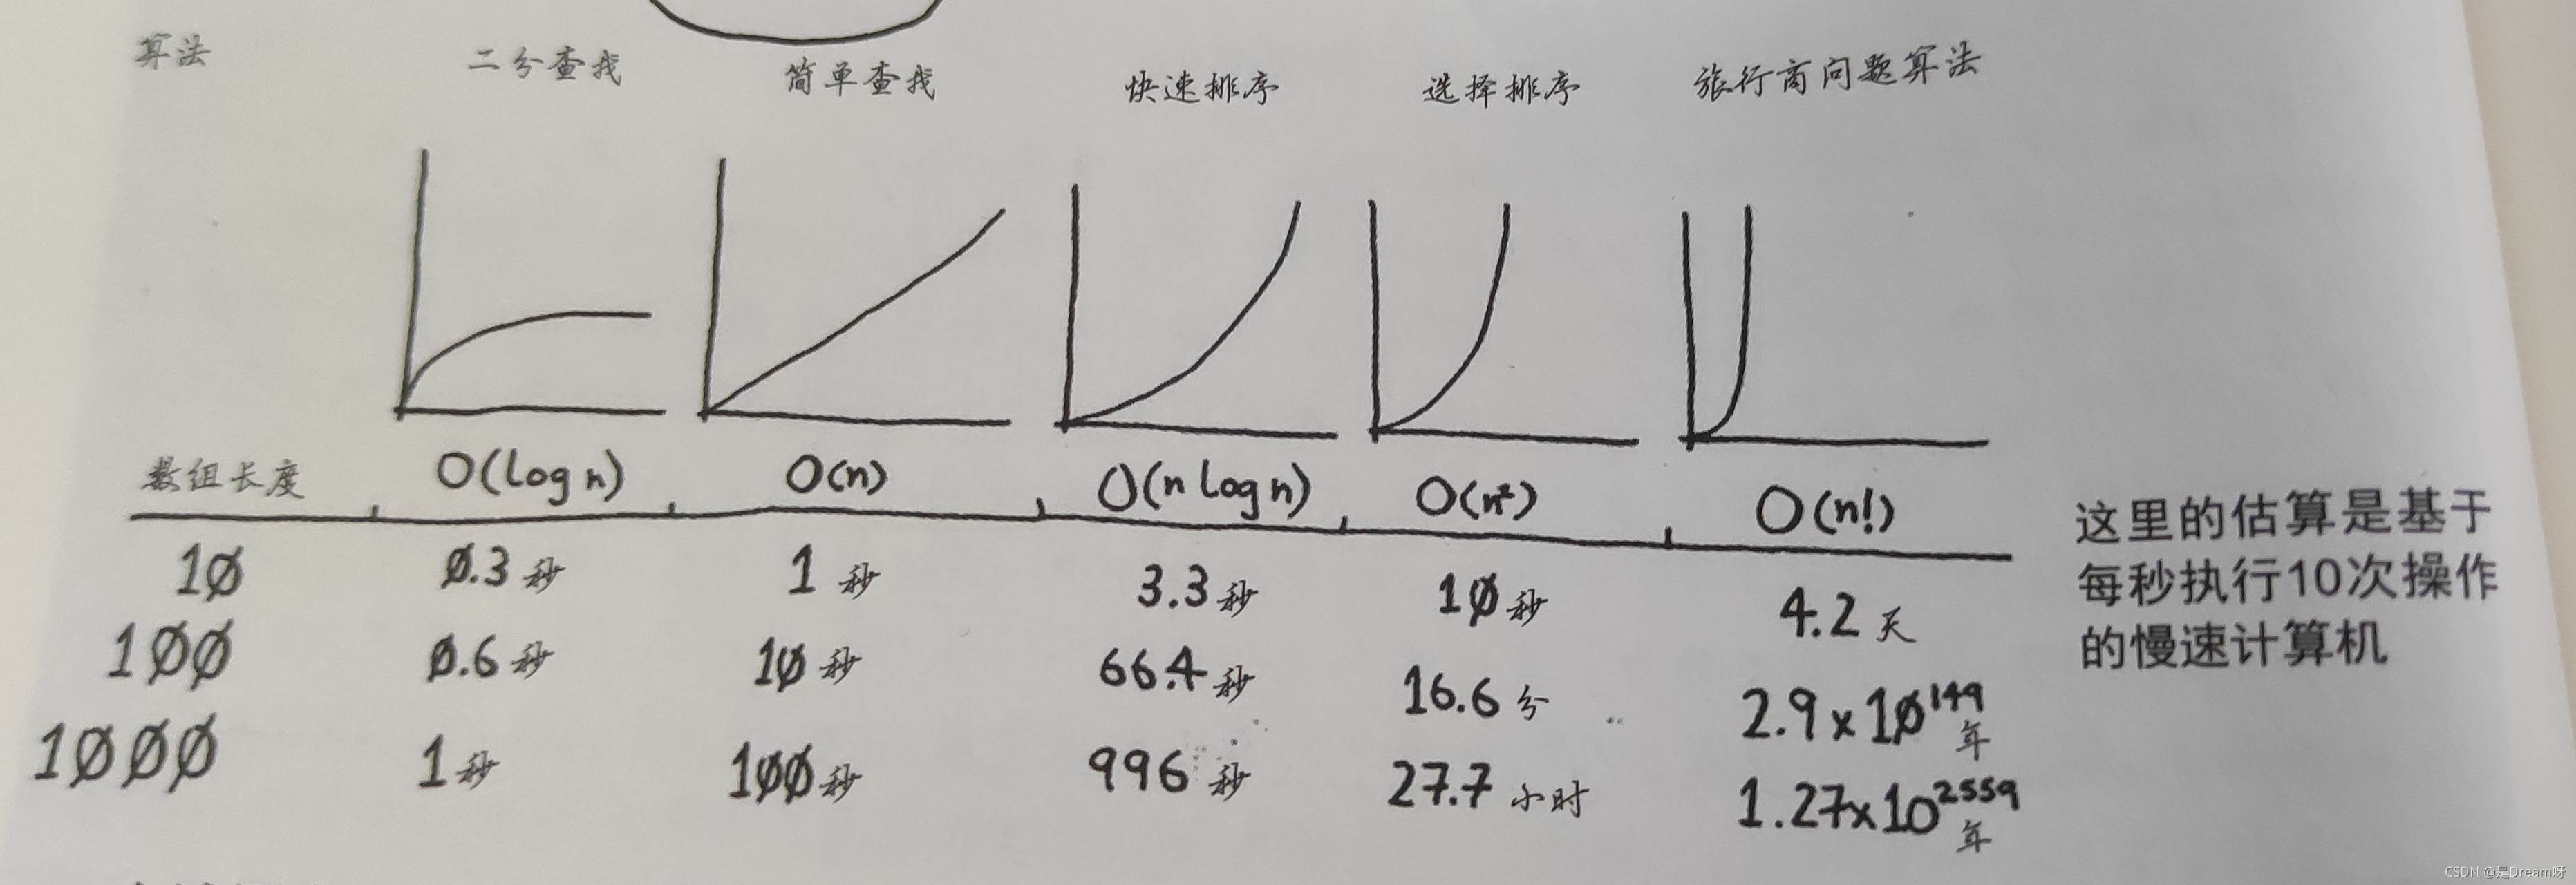 算法 二分查找 简单查找 快速排序 选择排序 旅行商问题算法
数组长度 O(log n) O(n) O(n log n) O(n²) O(n!)
10 0.3秒 1秒 3.3秒 10秒 4.2天
100 0.6秒 10秒 66.4秒 16.6分 2.9x10¹⁴⁹年
1000 1秒 100秒 996秒 27.7小时 1.27x10²⁵⁵⁹年
这里的估算是基于
每秒执行10次操作
的慢速计算机
CSDN @是Dream呀